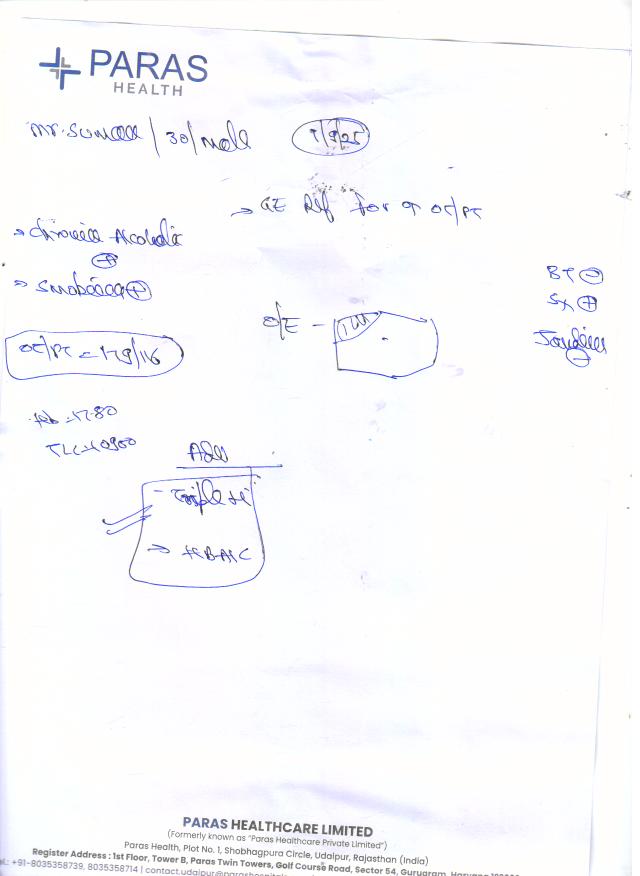 PARAS
HEALTH
30/Male
7/9/25
→ GE Ref for ↑ OT/PT
→ Chronic Alcoholic
+
→ +
BT -
SX +
O/E -
OT/PT = 179/116
-
Hb - 17.80
TLC -
Adv
- Triple H
→ HBA1C
PARAS HEALTHCARE LIMITED
(Formerly known as "Paras Healthcare Private Limited")
Paras Health, Plot No. 1, Shobhagpura Circle, Udaipur, Rajasthan (India)
Register Address : 1st Floor, Tower B, Paras Twin Towers, Golf Course Road, Sector 54, Gurugram, Haryana
+91-8035358739, 8035358714 | contact.udaipur@